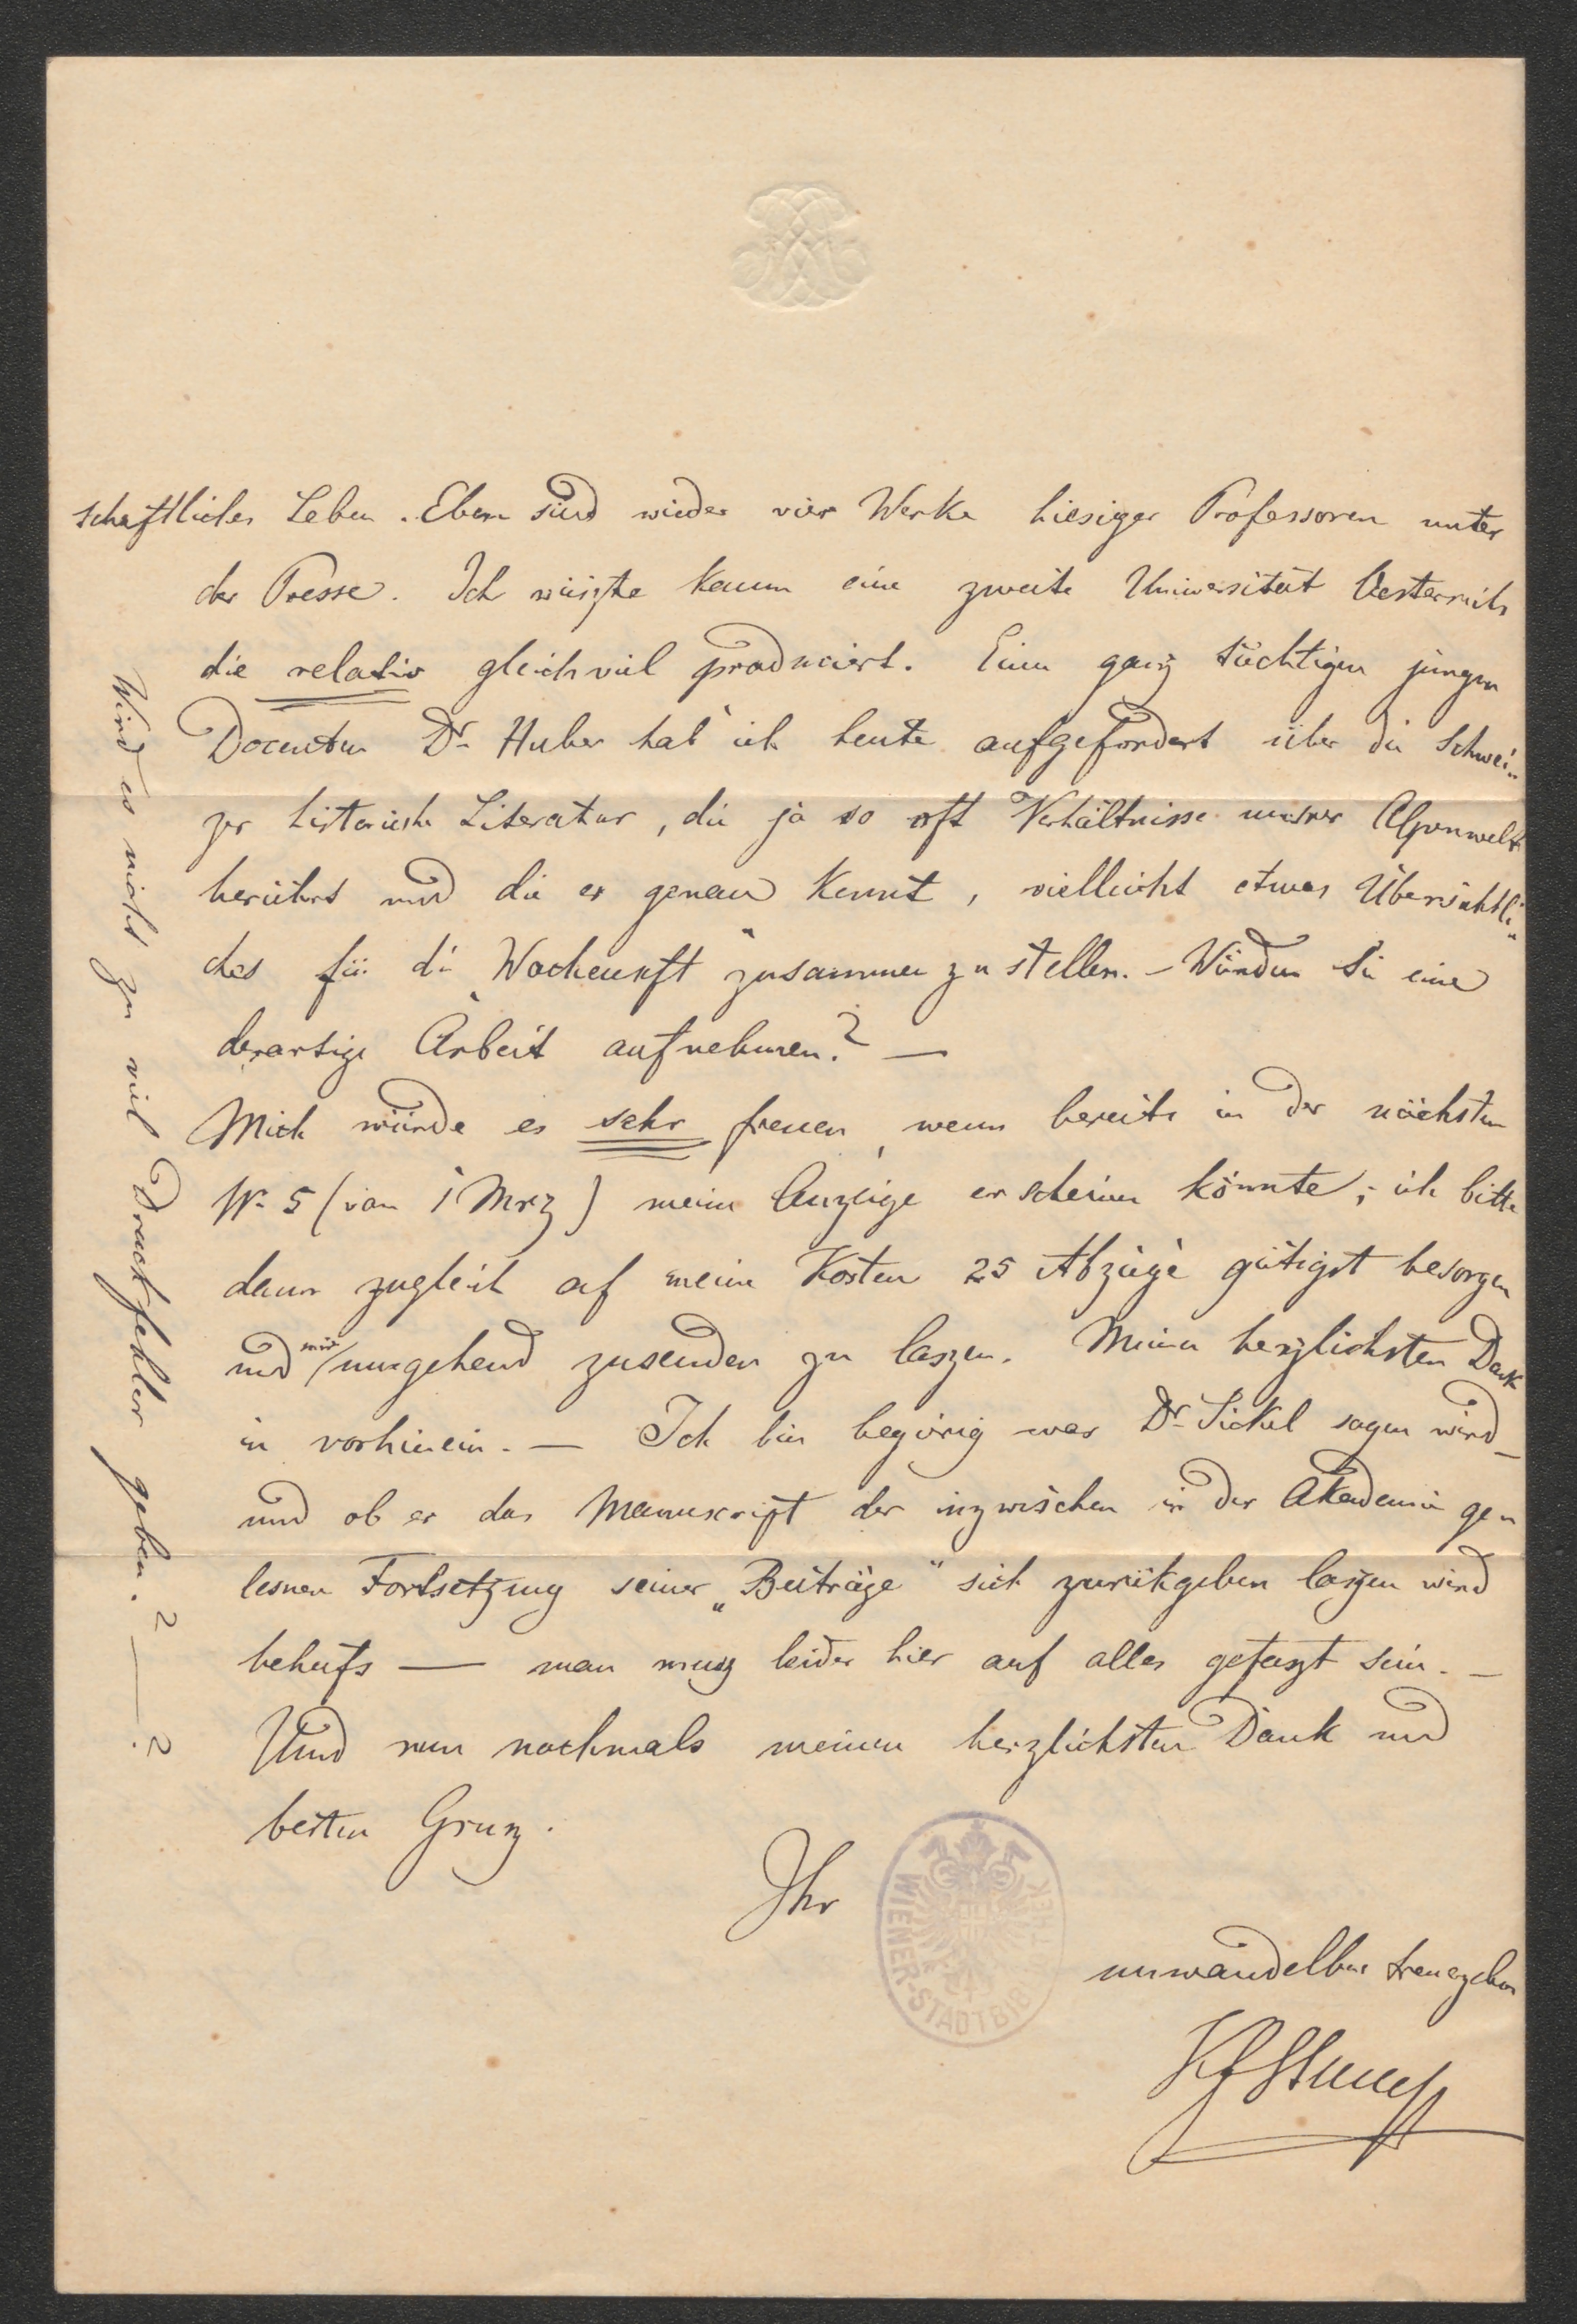 schaftliches Leben. Eben sind wieder vier Werke hiesiger Professoren unter
der Presse. Ich wüszte kaum eine zweite Universität Oesterreichs
die relativ gleichviel produciert. Einen ganz tüchtigen jungen
Docenten Dr Huber hab' ich heute aufgefordert über die Schwei„
zer historische Literatur, die ja so oft Verhältnisse unsrer Alpenwelt
berührt und die er genau kennt, vielleicht etwas Übersichtli„
ches für die „Wochenschft" zusammen zu stellen. – Würden Sie eine
derartige Arbeit aufnehmen? —
Mich würde es sehr freuen, wenn bereits in der nächsten
Nr 5 (vom 1 Mrz) meine Anzeige erscheinen könnte; ich bitte
dann zugleich auf meine Kosten 25 Abzüge gütigst besorgen
und mir umgehend zusenden zu laszen. Meinen herzlichsten Dank
in vorhinein. — Ich bin begirig was Dr Sickel sagen wird –
und ob er das Manuscript der inzwischen in der Akademie ge„
lesnen Fortsetzung seiner „Beiträge" sich zurükgeben laszen wird
behufs — man musz leider hier auf alles gefaszt sein. –
Und nun nochmals meinen herzlichsten Dank und
besten Grusz.
Ihr
unwandelbar treuergebner
KFStumpf
Wird es nicht zu viel Druckfehler geben. ? — ?
WIENER-STADTBIBLIOTHEK